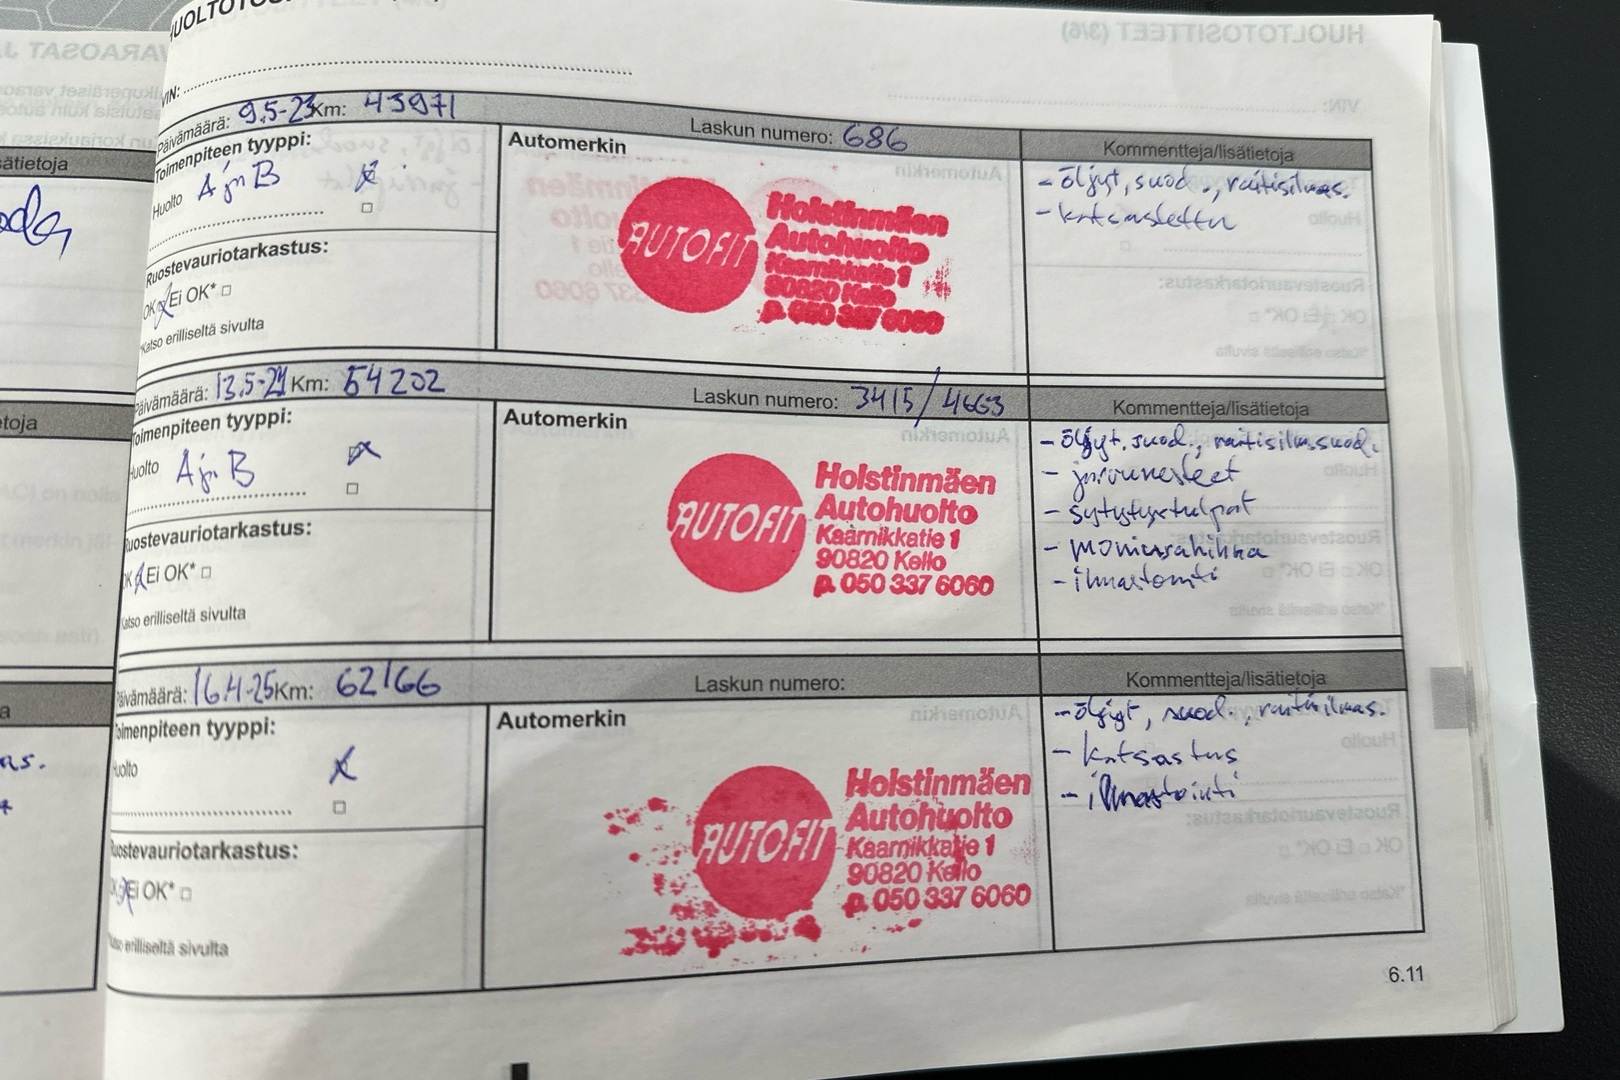 VIN:
Päivämäärä: 9.5-23 Km: 43971 Laskun numero: 686 Kommentteja/lisätietoja
Toimenpiteen tyyppi:
Huolto A jn B
Automerkin
- öljyt, suod., raitisilmas.
- katsastettu
Ruostevauriotarkastus:
OK Ei OK* □
*Katso erilliseltä sivulta
AUTOFIT
Holstinmäen
Autohuolto
Kaarnikkatie 1
90820 Kello
p. 050 337 6060
Päivämäärä: 13.5-24 Km: 54202 Laskun numero: 3415/4663 Kommentteja/lisätietoja
Toimenpiteen tyyppi:
Huolto A jn B
Automerkin
- öljyt, suod., raitisilmasuod.
- jarrunesteet
- sytytystulpat
- moniurahihna
- ilmastointi
Ruostevauriotarkastus:
OK Ei OK* □
Katso erilliseltä sivulta
AUTOFIT
Holstinmäen
Autohuolto
Kaarnikkatie 1
90820 Kello
p. 050 337 6060
Päivämäärä: 16.4-25 Km: 62166 Laskun numero: Kommentteja/lisätietoja
Toimenpiteen tyyppi:
Huolto
Automerkin
- öljyt, suod., raitisilmas.
- katsastus
- ilmastointi
Ruostevauriotarkastus:
Ei OK* □
erilliseltä sivulta
AUTOFIT
Holstinmäen
Autohuolto
Kaarnikkatie 1
90820 Kello
p. 050 337 6060
6.11